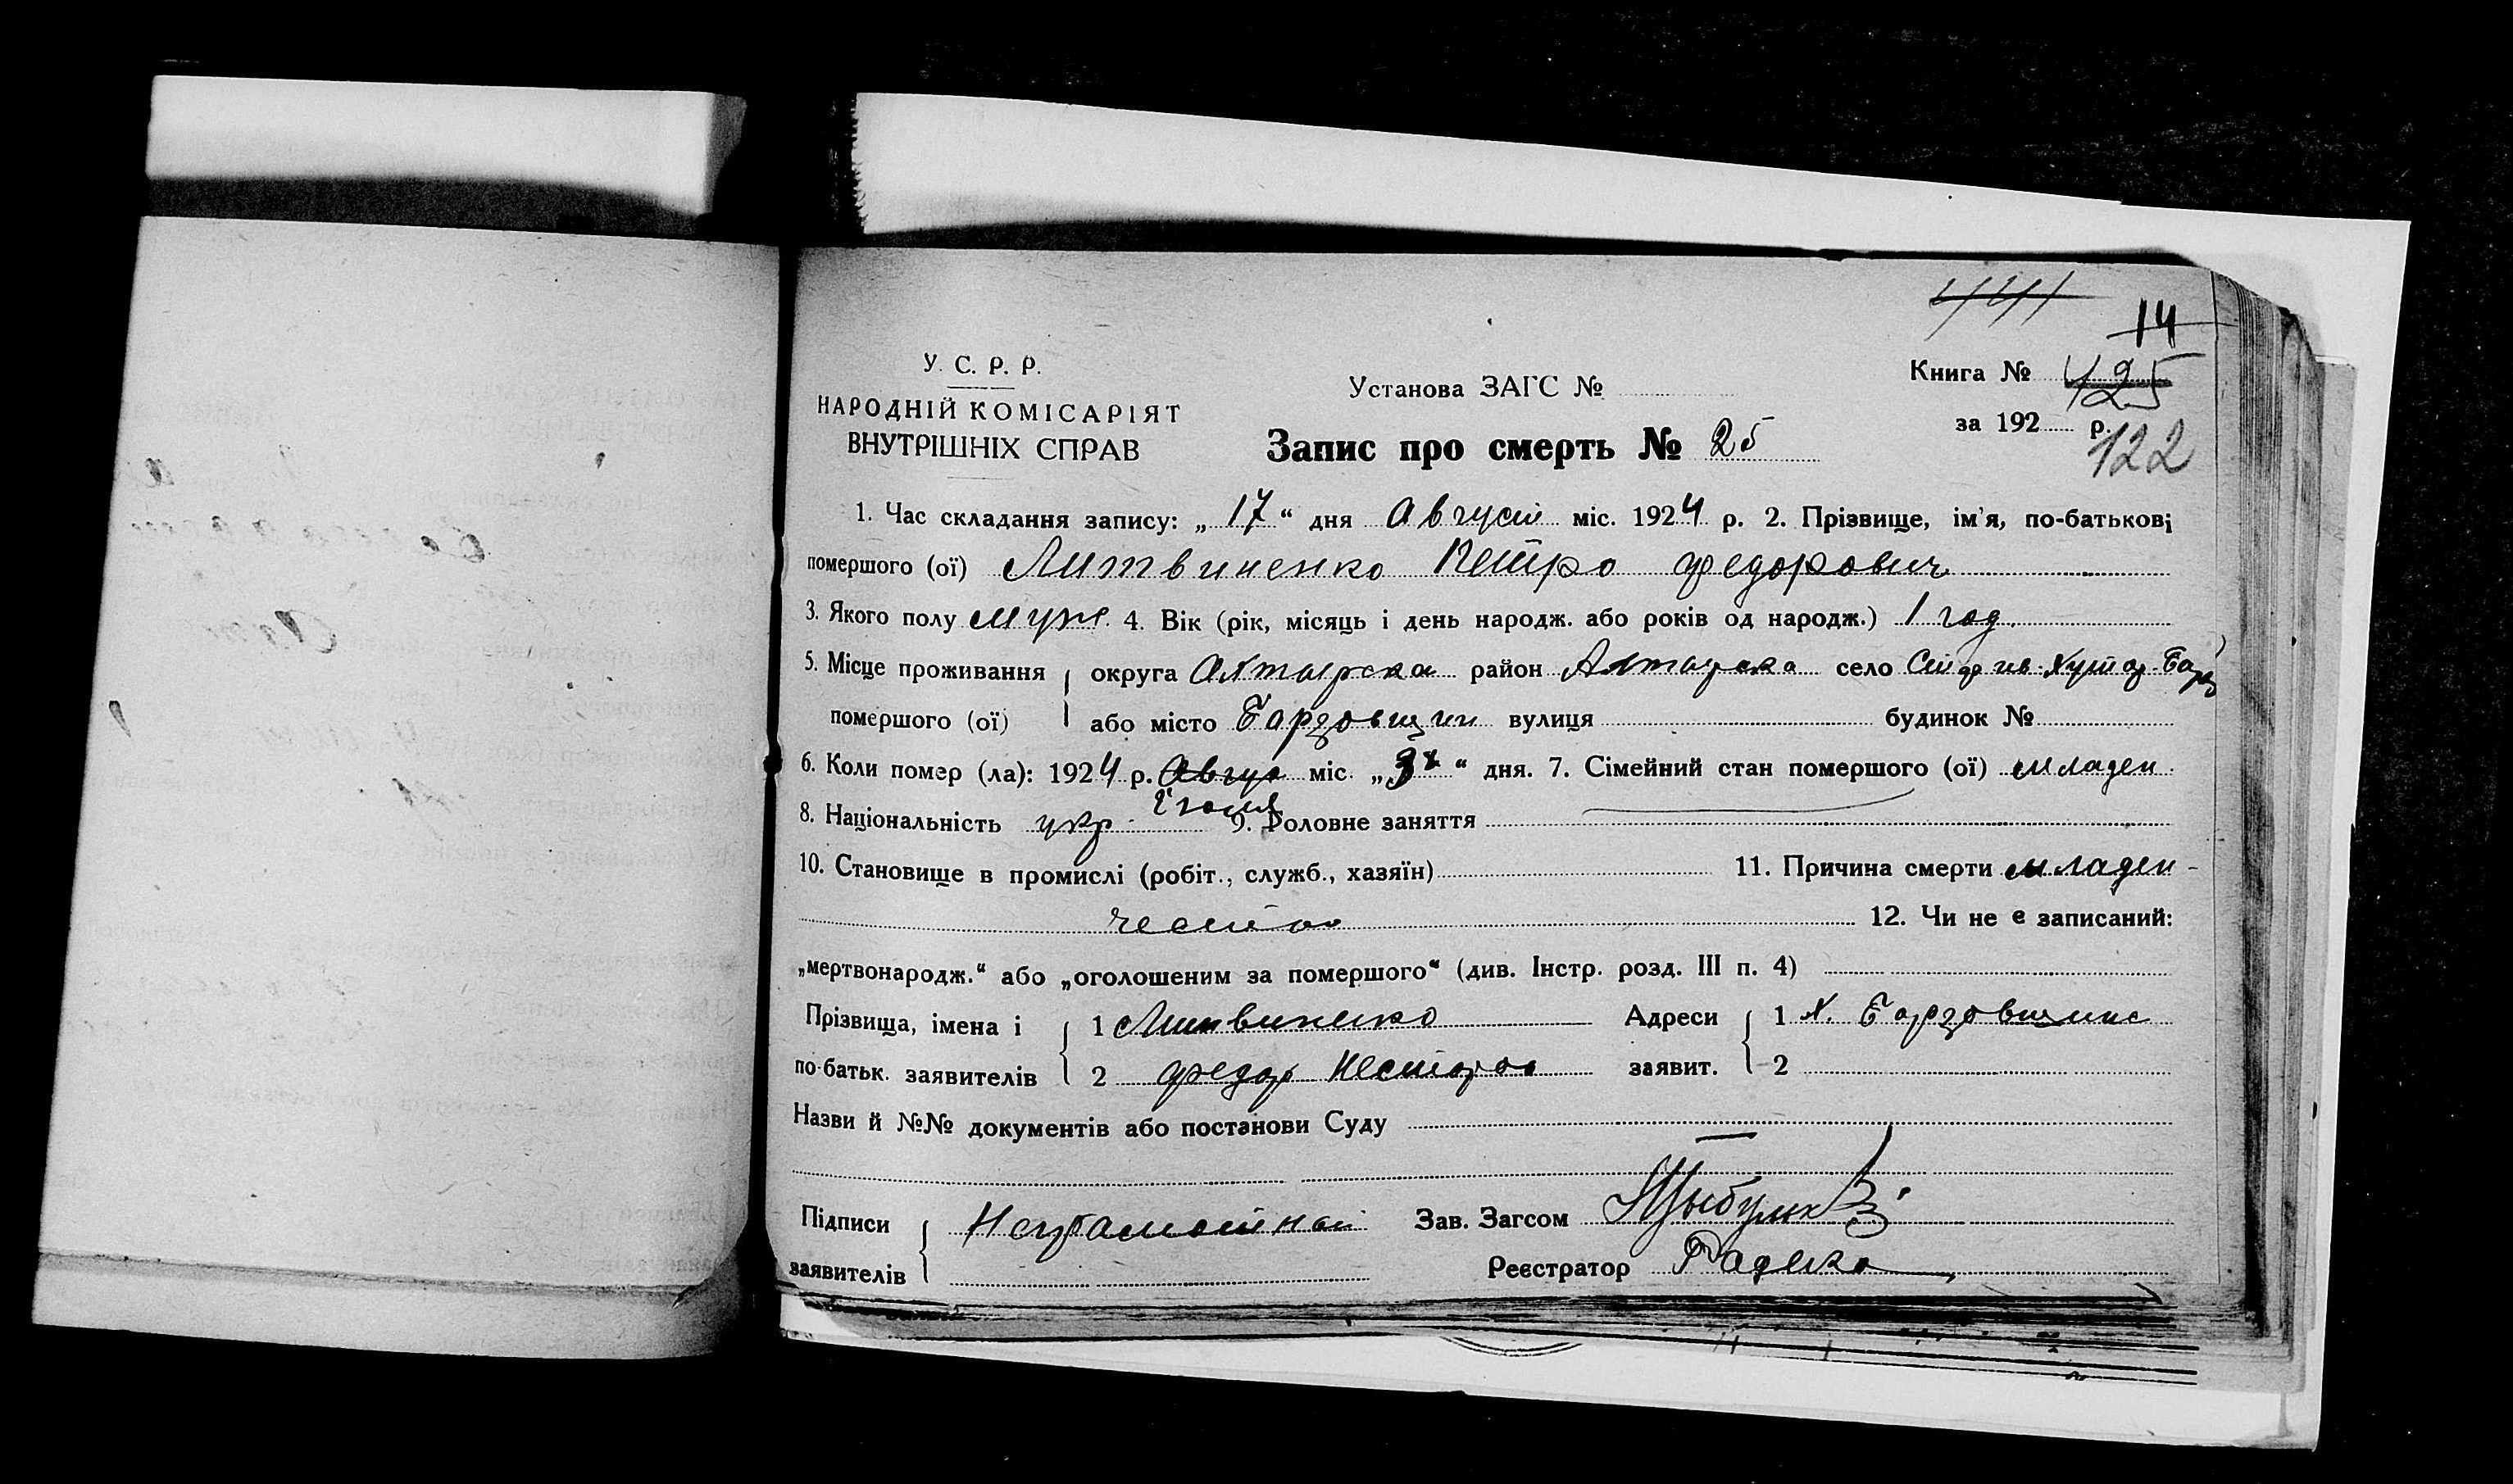 441
14
У. С. Р. Р.
Установа ЗАГС №
Книга № 425
НАРОДНІЙ КОМІСАРІЯТ
за 192 р.
ВНУТРІШНІХ СПРАВ
Запис про смерть № 25
122
1. Час складання запису: „17“ дня Август міс. 1924 р. 2. Прізвище, ім’я, по-батькові
помершого (ої) Литвиненко Петро Федорович
3. Якого полу муж. 4. Вік (рік, місяць і день народж. або років од народж.) 1 год.
5. Місце проживання округа Ахтырска район Ахтырска село Хутор
помершого (ої) або місто вулиця будинок №
6. Коли помер (ла): 1924 р. Авгус міс. „3“ дня. 7. Сімейний стан помершого (ої) младен
8. Національність укр. 9. Головне заняття
10. Становище в промислі (робіт., служб., хазяїн) 11. Причина смерти младен-
чество 12. Чи не є записаний:
„мертвонародж.“ або „оголошеним за помершого“ (див. Інстр. розд. III п. 4)
Прізвища, імена і 1 Литвиненко Адреси 1 Х.
по-батьк. заявителів 2 Федор Нестеров заявит. 2
Назви й №№ документів або постанови Суду
Підписи Неграмотный Зав. Загсом
заявителів Реєстратор